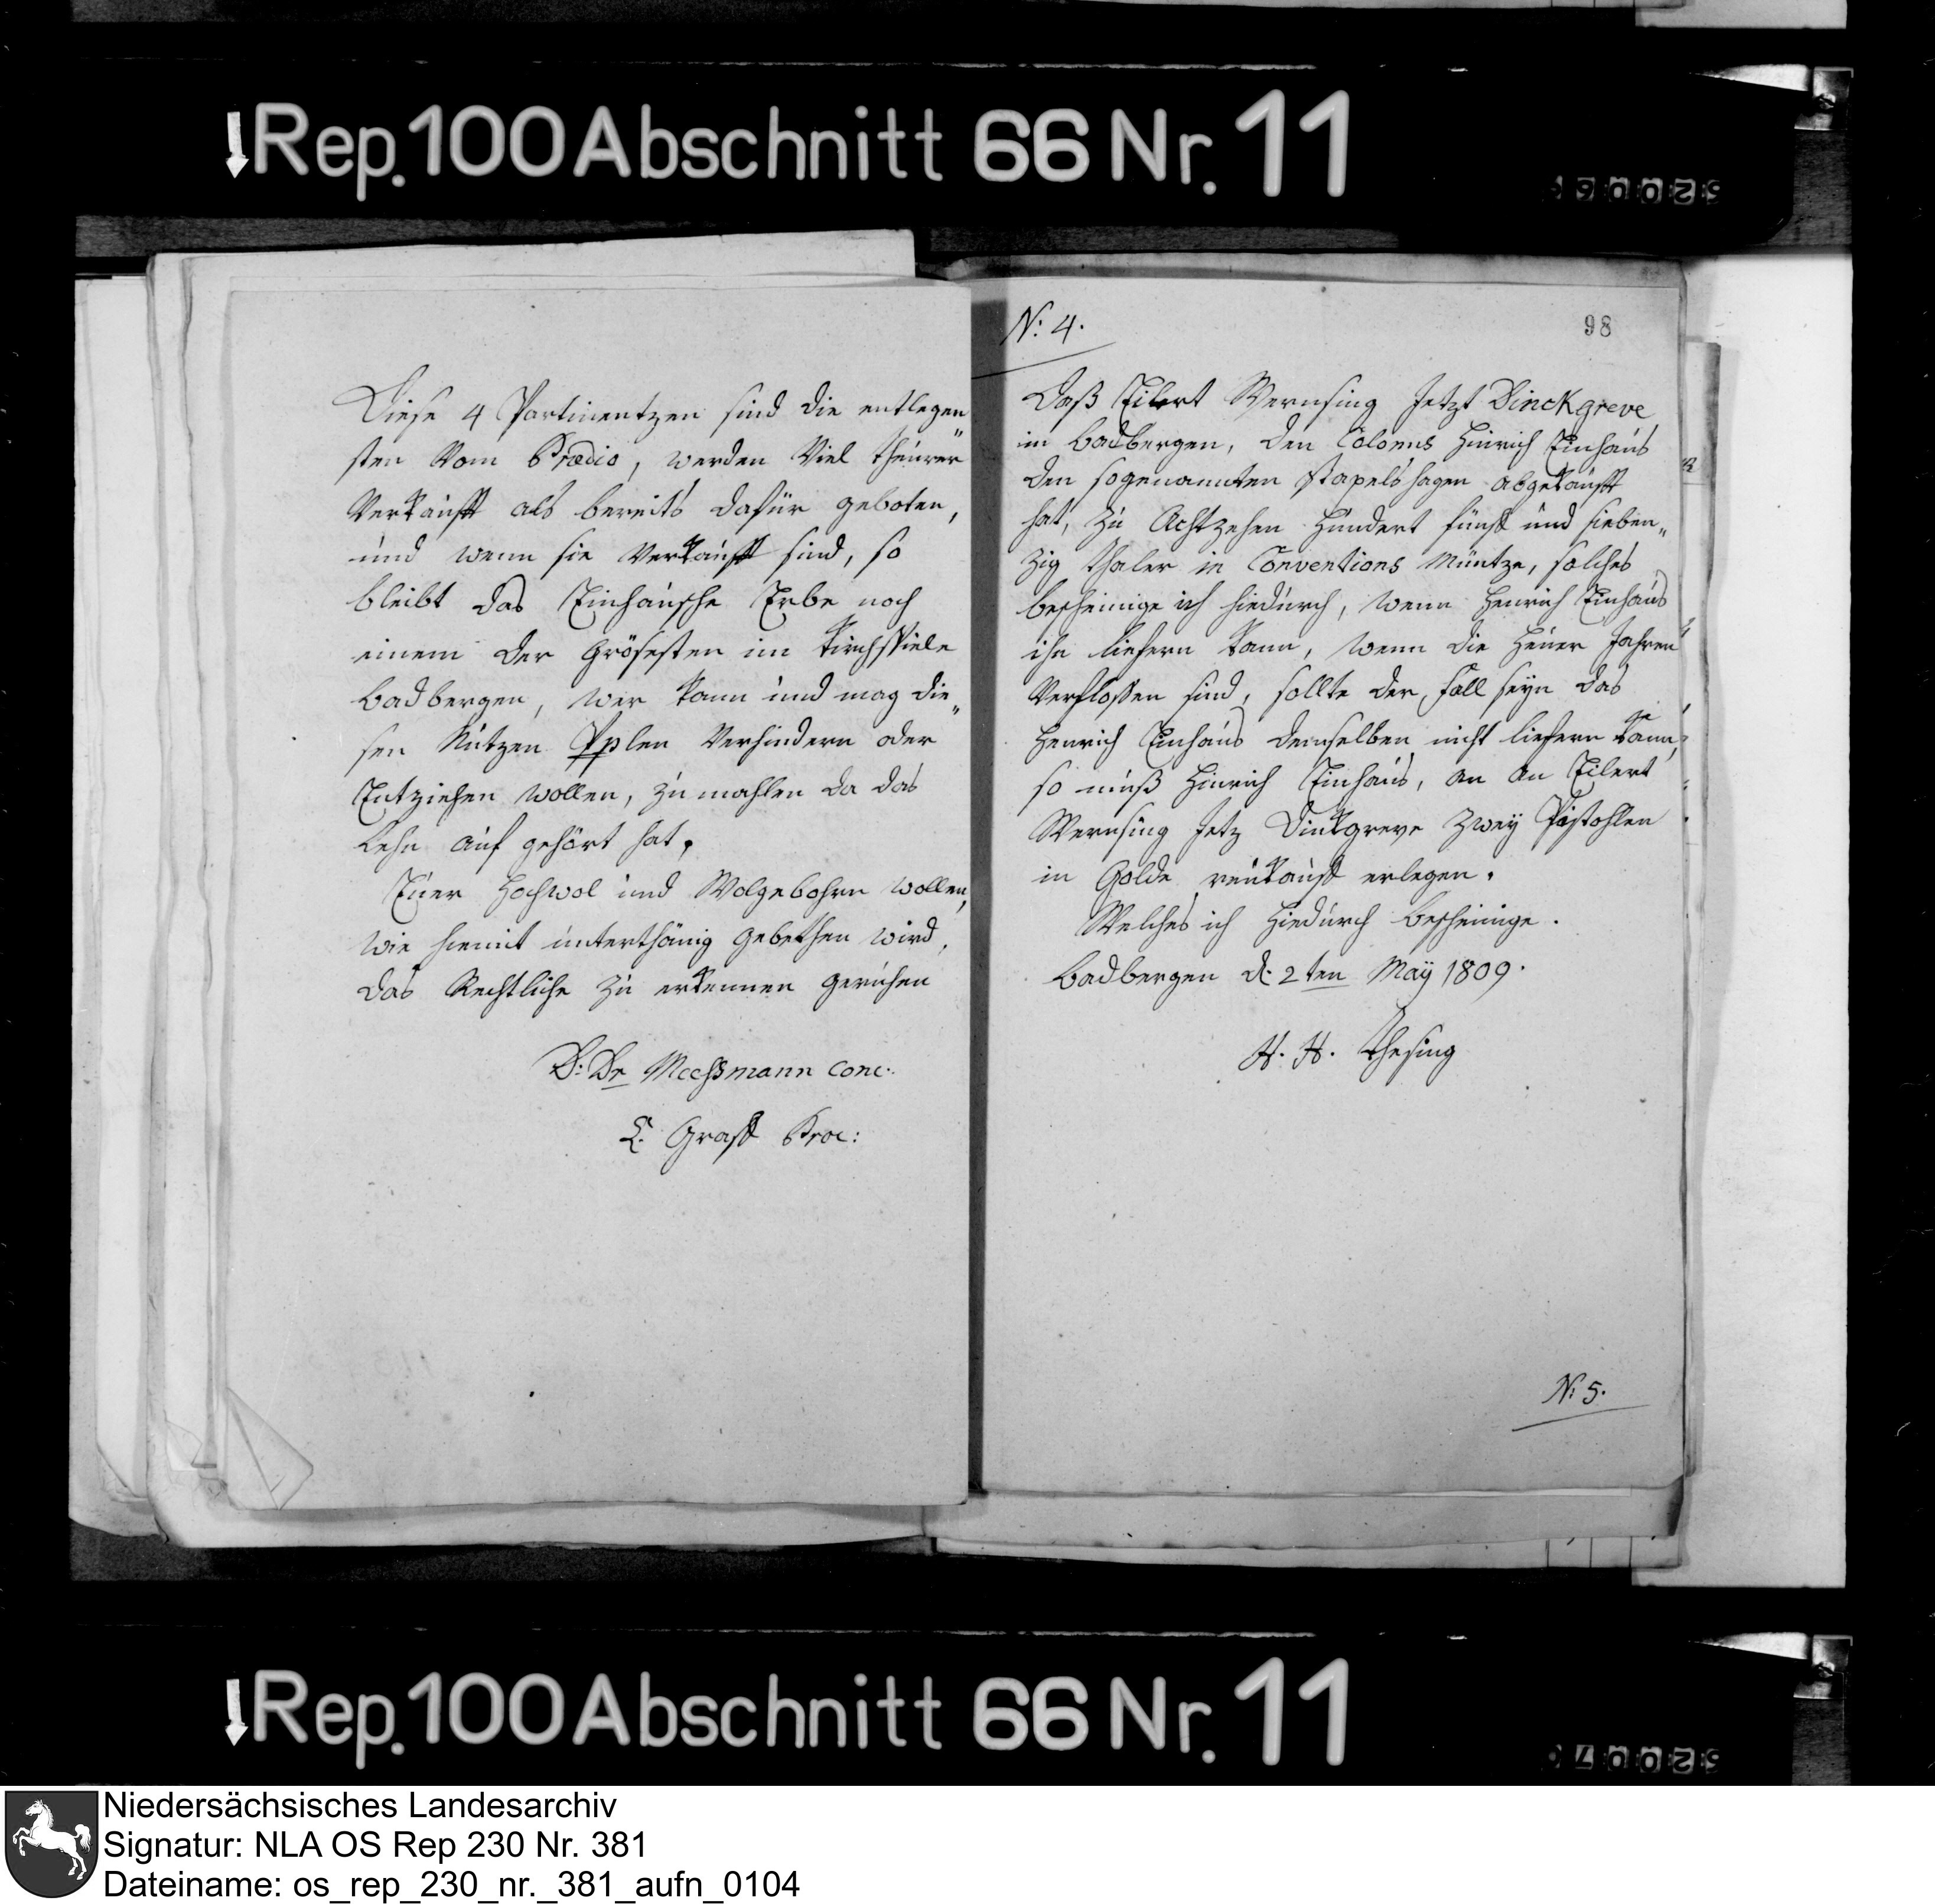 Rep. 100 Abschnitt 66 Nr. 11
Diese 4 Pertinentzen sind die entlegen„
sten vom Prædio, werden viel theurer
verkauft als bereits dafür geboten,
und wenn sie verkauft sind, so
bleibt das Einhausche Erbe noch
einem der Grösesten im Kirchspiele
Badbergen, wer kann und mag die„
sen Nutzen Pplen verhindern oder
Entziehen wollen, zu mahlen da das
Lehn auf gehört hat.
Euer Hochwol und Wolgebohrn wollen,
wie hiemit unterthänig gebethen wird,
das Rechtliche zu erkennen geruhen
D: Dr Meessmann conc:
L. Graff Proc:
N: 4.
98
Daß Eilert Wernsing Jetzt Dinckgreve
in Badbergen, den Colonus Hinrich Einhaus
den sogenannten Stapelshagen abgekauft
hat, zu Achtzehen Hundert fünf und sieben„
zig Thaler in Conventions Müntze, solches
bescheinige ich hiedurch, wenn Henrich Einhaus
ihn liefern kann, wenn die Heuer Jahren
verfloßen sind, sollte der Fall seyn das
Henrich Einhaus denselben nicht liefern kann,
so muß Hinrich Einhaus, an an Eilert
Wernsing Jetz Dinkgreve zwey Pistohlen
in Golde reukauf erlegen.
Welches ich Hiedurch bescheinige.
Badbergen d. 2ten May 1809.
H. H. Thesing
N: 5.
Rep. 100 Abschnitt 66 Nr. 11
Niedersächsisches Landesarchiv
Signatur: NLA OS Rep 230 Nr. 381
Dateiname: os_rep_230_nr._381_aufn_0104